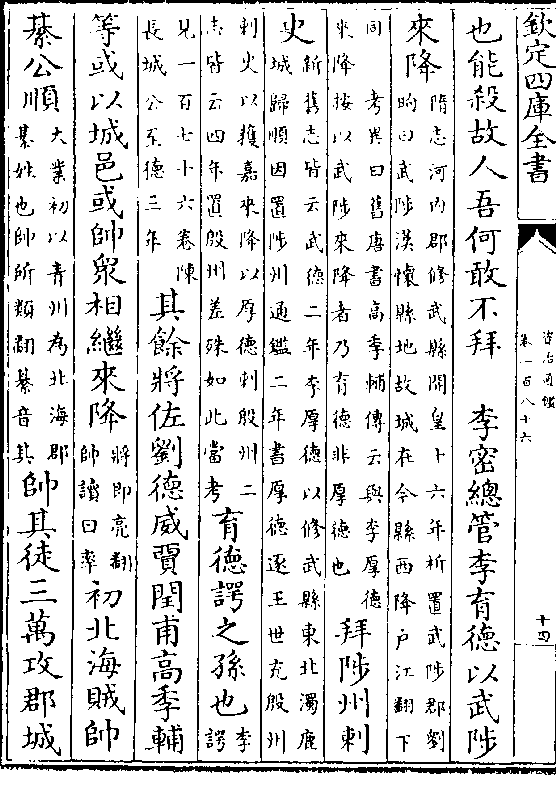 欽定四庫全書
資治通鑑
卷一百八十六
十四
也能殺故人吾何敢不拜　李密總管李育德以武陟
來降隋志河内郡修武縣開皇十六年析置武陟郡劉
昫曰武陟漢懷縣地故城在今縣西降户江翻下
同　考異曰舊唐書高季輔傳云與李厚德
來降按以武陟來降者乃育德非厚德也拜陟州刺
史新舊志皆云武德二年李厚德以修武縣東北濁鹿
城歸順因置陟州通鑑二年書厚德逐王世充殷州
刺史以獲嘉來降以厚德刺殷州二
志皆云四年置殷州差殊如此當考育德諤之孫也李諤
見一百七十六卷陳
長城公至德三年其餘將佐劉德威賈閏甫高季輔
等或以城邑或帥衆相繼來降將即亮翻
帥讀曰率初北海賊帥
綦公順大業初以青州為北海郡
綦姓也帥所類翻綦音其帥其徒三萬攻郡城